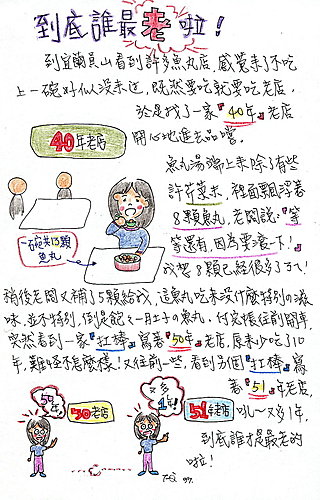 到底誰最老啦！
到宜蘭員山看到許多魚丸店，感覺來了不吃
上一碗好似沒來过，既然要吃就要吃老店，
於是找了一家『40年』老店
開心地進去品嚐。
40年老店
魚丸湯端上來除了有些
許芹菜末，裡面飄浮著
8顆魚丸，老闆說：『等
等還有，因為要滾一下！』
我想8顆已經很多了ㄟ！
一碗共13顆
魚丸
稍後老闆又補了5顆給我，這魚丸吃來沒什麼特別の滋
味，並不特別，倒是飽了一肚子の魚丸。付完後往前開車，
突然看到一家『扛棒』寫著『50年』老店，原來少吃了10
年，難怪不怎麼樣！又往前一些，看到另個『扛棒』寫
著『51』年老店，
吼～又多1年，
到底誰才是最老的
啦！
50年
50老店
又多
1年！
51年老店